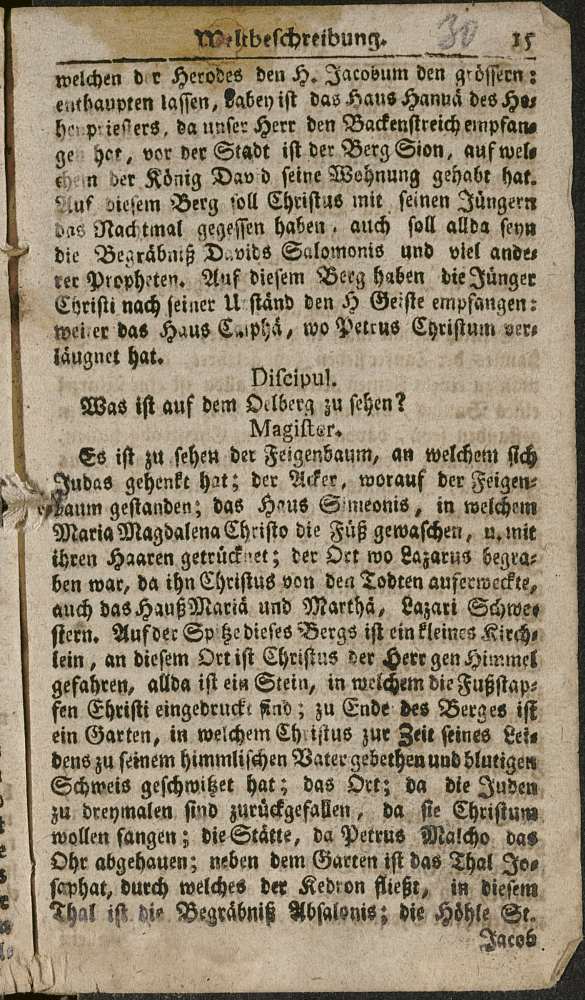 Weltbeschreibung. 30 15
welchen der Herodes den H. Jacobum den grössern:
enthaupten lassen, dabey ist das Haus Hannä des Ho-
henpriesters, da unser Herr den Backenstreich empfan-
gen hat, vor der Stadt ist der Berg Sion, auf wel-
chem der König David seine Wohnung gehabt hat.
Auf diesem Berg soll Christus mit seinen Jüngern
das Nachtmal gegessen haben, auch soll allda seyn
die Begräbniß Davids Salomonis und viel ande-
rer Propheten. Auf diesem Berg haben die Jünger
Christi nach seiner Urständ den H Geiste empfangen:
weiter das Haus Caiphä, wo Petrus Christum ver-
läugnet hat.
Discipul.
Was ist auf dem Oelberg zu sehen?
Magister.
Es ist zu sehen der Feigenbaum, an welchem sich
Judas gehenkt hat; der Acker, worauf der Feigen-
baum gestanden; das Haus Simeonis, in welchem
Maria Magdalena Christo die Füß gewaschen, u. mit
ihren Haaren getrücknet; der Ort wo Lazarus begra-
ben war, da ihn Christus von den Todten auferweckte,
auch das Hauß Mariä und Marthä, Lazari Schwe-
stern. Auf der Spitze dieses Bergs ist ein kleines Kirch-
lein, an diesem Ort ist Christus der Herr gen Himmel
gefahren, allda ist ein Stein, in welchem die Fußstap-
fen Christi eingedruckt sind; zu Ende des Berges ist
ein Garten, in welchem Christus zur Zeit seines Lei-
dens zu seinem himmlischen Vater gebethen und blutigen
Schweis geschwitzet hat; das Ort; da die Juden
zu dreymalen sind zurückgefallen, da sie Christum
wollen fangen; die Stätte, da Petrus Malcho das
Ohr abgehauen; neben dem Garten ist das Thal Jo-
saphat, durch welches der Kedron fließt, in diesem
Thal ist die Begräbniß Absalonis; die Höhle St.
Jacob